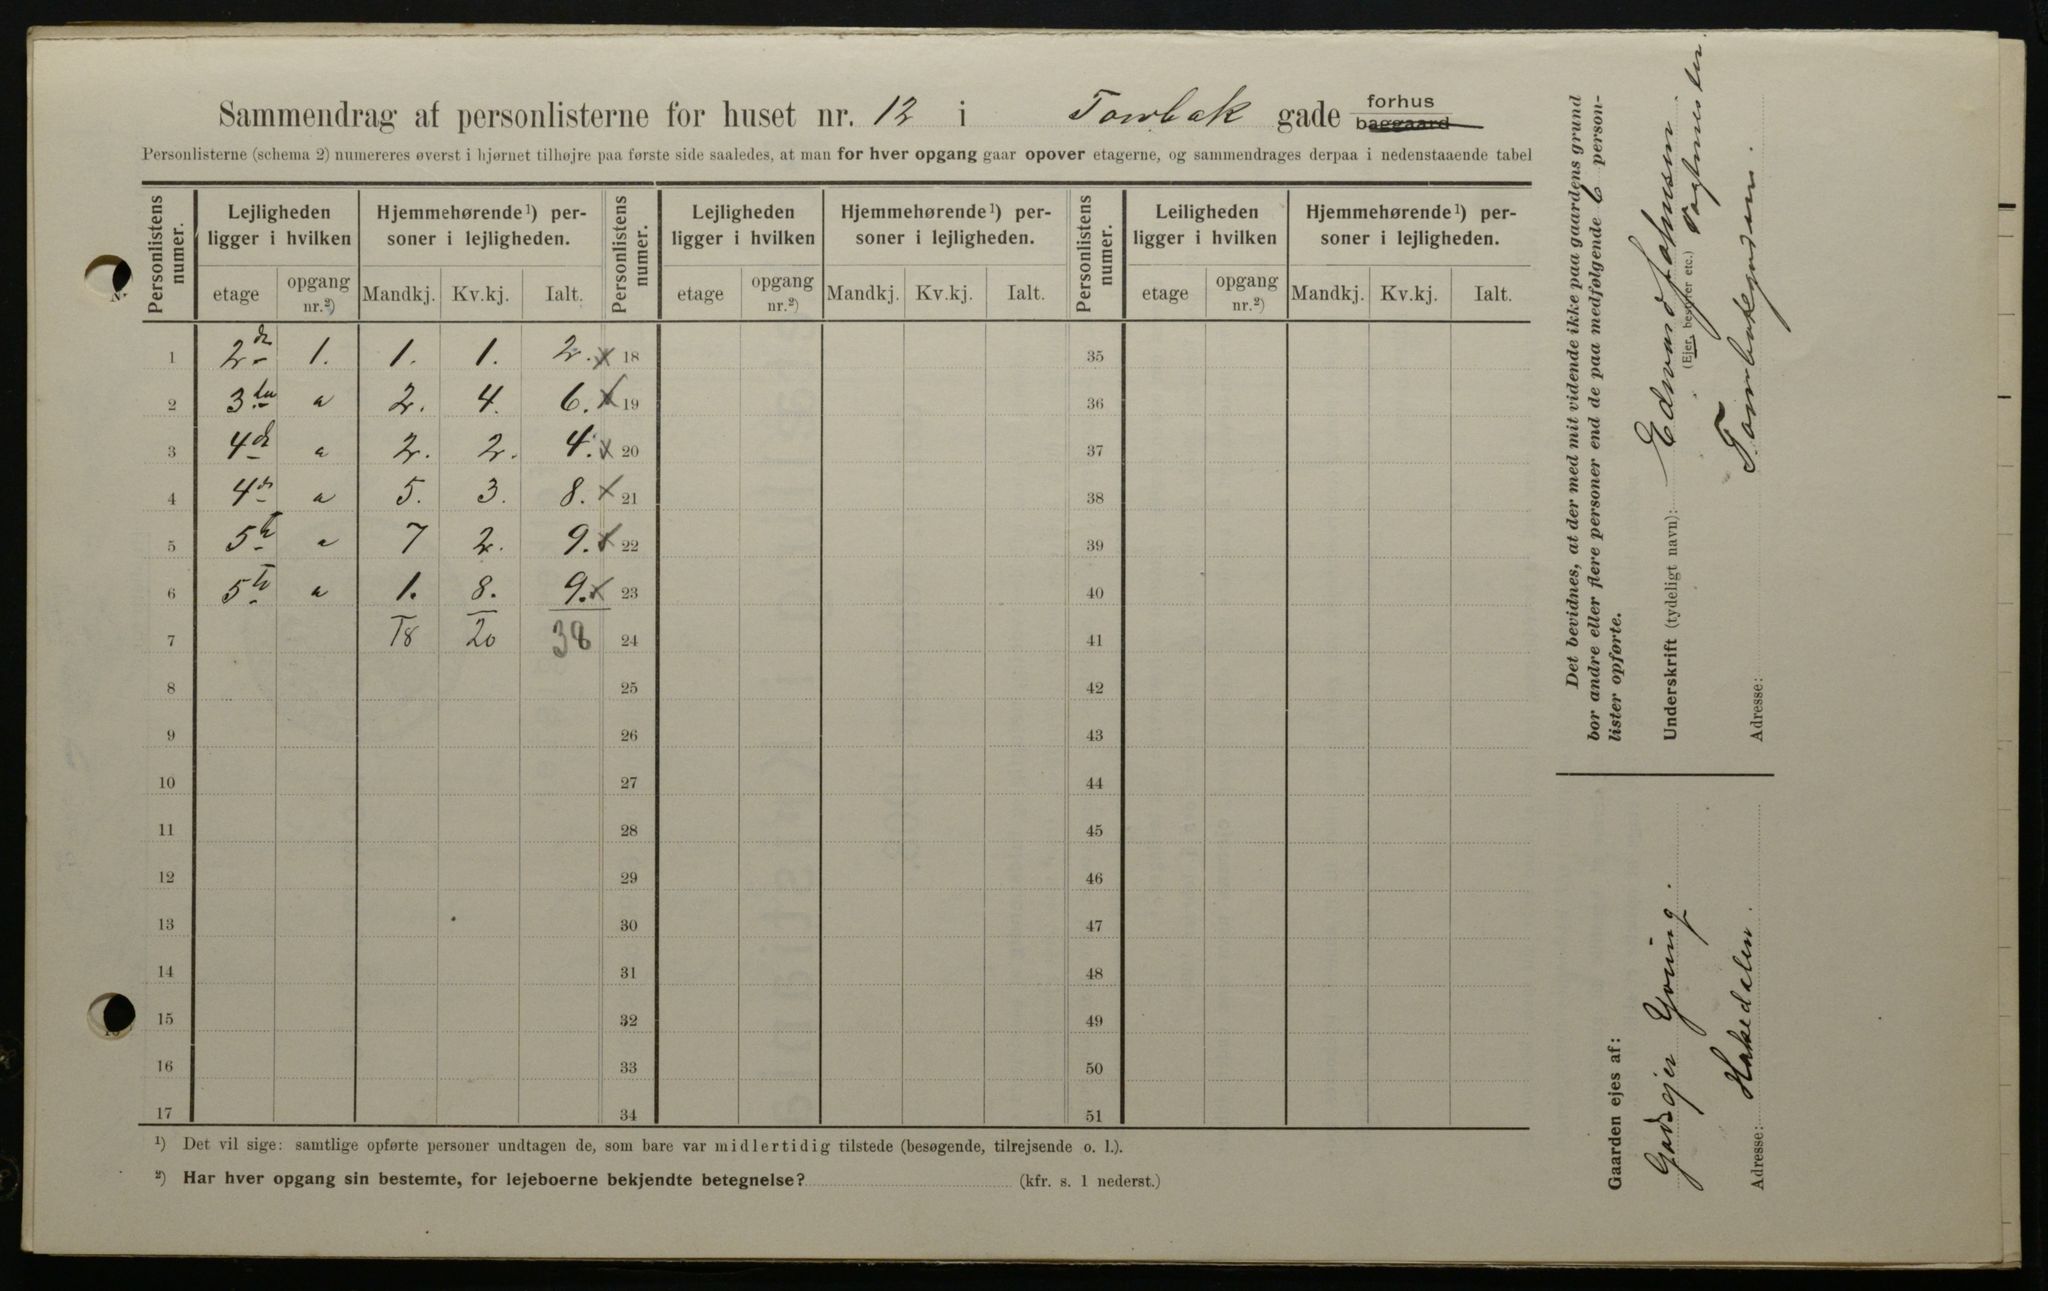 Sammendrag af personlisterne for huset nr. 12 i Torvbak gade forhus baggaard
Personlisterne (schema 2) numereres øverst i hjørnet tilhøjre paa første side saaledes, at man for hver opgang gaar opover etagerne, og sammendrages derpaa i nedenstaaende tabel
Personlistens numer. Lejligheden ligger i hvilken Hjemmehørende¹) personer i lejligheden. Personlistens numer. Lejligheden ligger i hvilken Hjemmehørende¹) personer i lejligheden. Personlistens numer. Leiligheden ligger i hvilken Hjemmehørende¹) personer i lejligheden.
etage opgang nr.²) Mandkj. Kv.kj. Ialt. etage opgang nr.²) Mandkj. Kv.kj. Ialt. etage opgang nr.²) Mandkj. Kv.kj. Ialt.
1 2 1. 1. 1. 2. x 18 35
2 3 " 2. 4. 6. x 19 36
3 4 " 2. 2. 4. x 20 37
4 4 " 5. 3. 8. x 21 38
5 5 " 7 2. 9. x 22 39
6 5 " 1. 8. 9. x 23 40
7 18 20 38 24 41
8 25 42
9 26 43
10 27 44
11 28 45
12 29 46
13 30 47
14 31 48
15 32 49
16 33 50
17 34 51
¹) Det vil sige: samtlige opførte personer undtagen de, som bare var midlertidig tilstede (besøgende, tilrejsende o. l.).
²) Har hver opgang sin bestemte, for lejeboerne bekjendte betegnelse? (kfr. s. 1 nederst.)
Det bevidnes, at der med mit vidende ikke paa gaardens grund
bor andre eller flere personer end de paa medfølgende 6 person-
lister opførte.
Underskrift (tydeligt navn): Edward Johnsen
(Ejer, bestyrer etc.)
Adresse:
Gaarden ejes af:
Godsejer Young.
Adresse: Hakedalen.